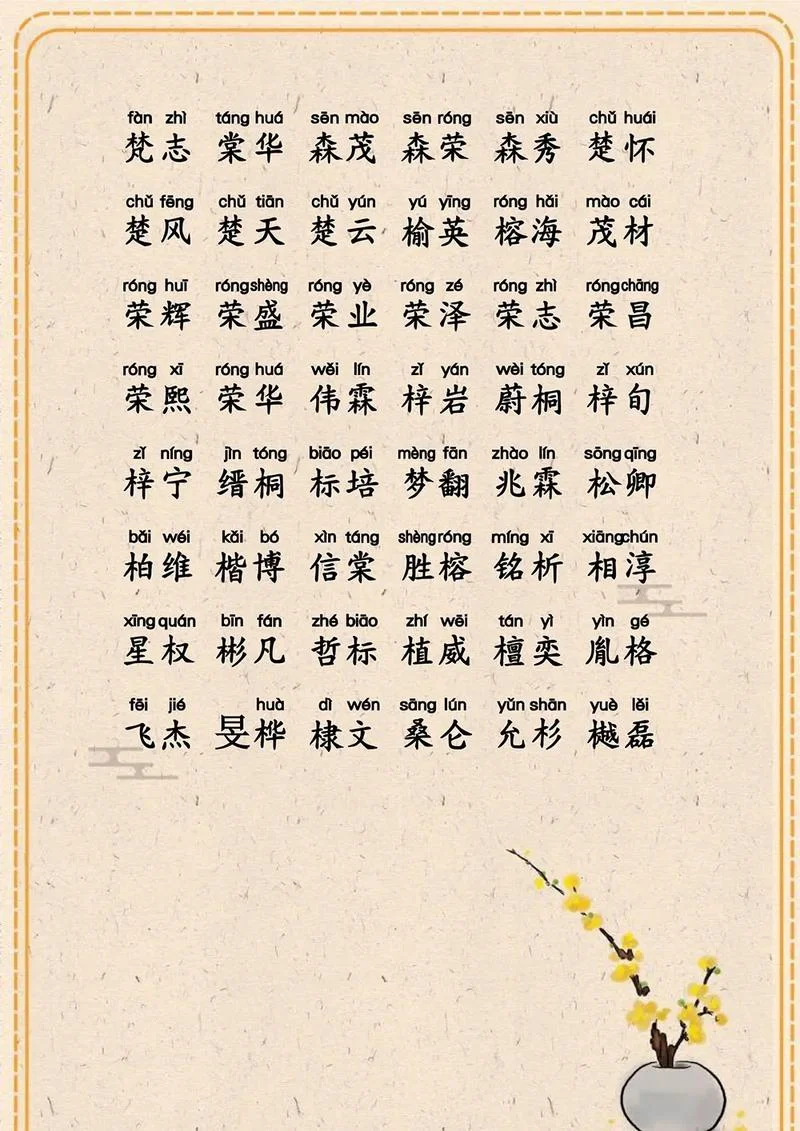 fàn zhì táng huá sēn mào sēn róng sēn xiù chǔ huái
梵志 棠华 森茂 森荣 森秀 楚怀
chǔ fēng chǔ tiān chǔ yún yú yīng róng hǎi mào cái
楚风 楚天 楚云 榆英 榕海 茂材
róng huī róng shèng róng yè róng zé róng zhì róng chāng
荣辉 荣盛 荣业 荣泽 荣志 荣昌
róng xī róng huá wěi lín zǐ yán wèi tóng zǐ xún
荣熙 荣华 伟霖 梓岩 蔚桐 梓旬
zǐ níng jìn tóng biāo péi mèng fān zhào lín sōng qīng
梓宁 缙桐 标培 梦翻 兆霖 松卿
bǎi wéi kǎi bó xìn táng shèng róng míng xī xiāng chún
柏维 楷博 信棠 胜榕 铭析 相淳
xīng quán bīn fán zhé biāo zhí wēi tán yì yìn gé
星权 彬凡 哲标 植威 檀奕 胤格
fēi jié huà dì wén sāng lún yǔn shān yuè lěi
飞杰 旻桦 棣文 桑仑 允杉 樾磊